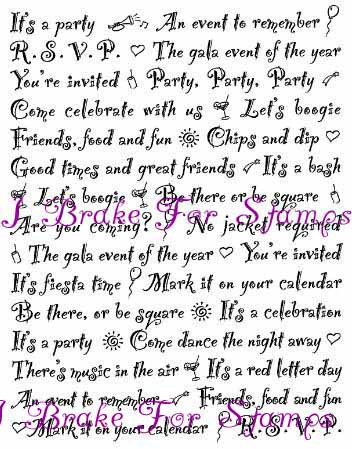 It's a party An event to remember
R.S.V.P. The gala event of the year
You're invited Party, Party, Party
Come celebrate with us Let's boogie
Friends, food and fun Chips and dip
Good times and great friends It's a bash
Let's boogie Be there or be square
I Brake For Stamps
Are you coming? No jacket required
The gala event of the year You're invited
It's fiesta time Mark it on your calendar
Be there, or be square It's a celebration
It's a party Come dance the night away
There's music in the air It's a red letter day
An event to remember Friends, food and fun
I Brake For Stamps
Mark it on your calendar R.S.V.P.